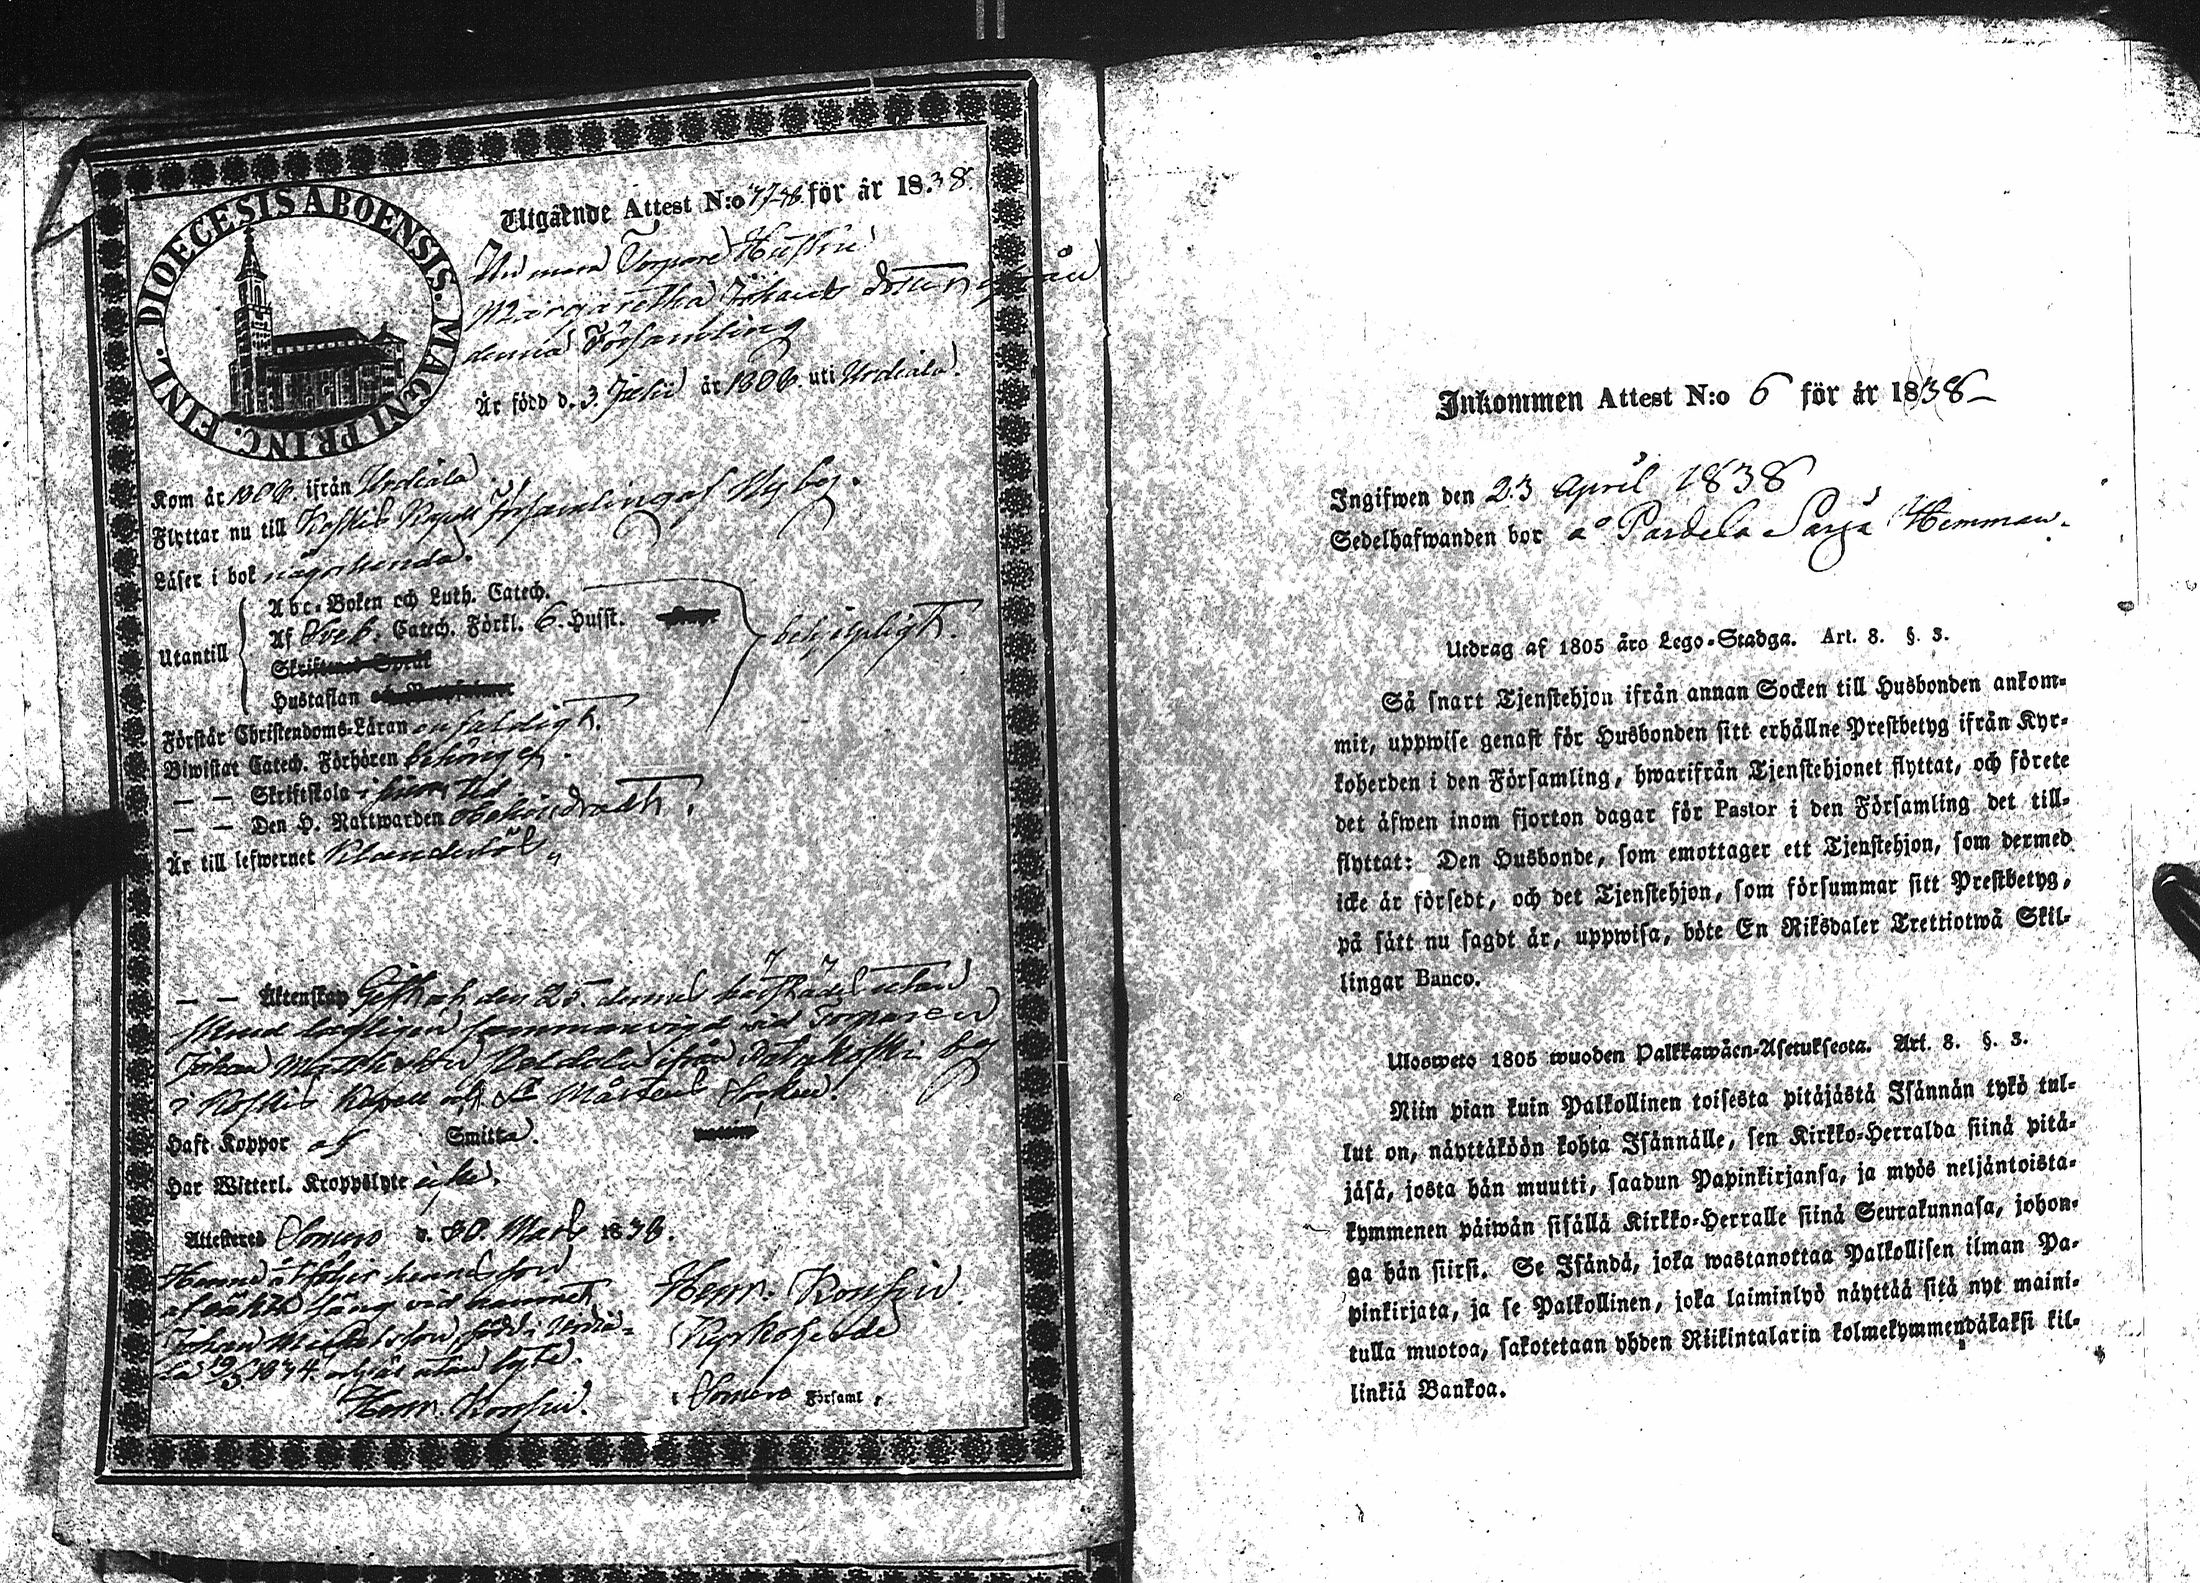 DIOECESIS ABOENSIS. MAGNI PRINC. FINL.
Utgående Attest N:o för år 1838.
Torpare Hustru
Margaretha Johans dotter ifrån
denna Församling
Är född d. 3 Julii år 1806 uti Urdiala.
Kom år 1806 ifrån Urdiala
Flyttar nu till Koskis Kapell Församling af by.
Läser i bok någorlunda.
Utantill
Abc-Boken och Luth. Catech.
Af Sveb. Catech. Förkl. 6. Husst.
behjelpligt.
Skriftens Språk
Hustaflan
Förstår Christendoms-Läran enfaldigt.
Biwistat Catech. Förhören behörigen.
— — Skriftskola i sinom tid.
— — Den H. Nattwarden obehindradt.
Är till lefwernet klanderlös
— — Äktenskap Gift och den 25 dennes utan
lagligen sammanvigd vid Torparen
Johan Matthsson ifrån by
i Koskis Kapell och St Mårtens Socken.
Haft Koppor af Smitta.
Har Witterl. Kroppslyte icke.
Attesteras Somero d. 30. Mars 1838.
Henne åtföljer hennes son
af säng vid namnet
Johan född i Urdia-
la 19/5 1834. och är utan lyte.
Herm. Konsin.
Herm. Konsin.
Kyrkoherde
i Somero Församl.
Inkommen Attest N:o 6 för år 1838
Ingifwen den 23 April 1838
Sedelhafwanden bor å Pardela Sarja Hemman.
Utdrag af 1805 års Lego-Stadga. Art. 8. §. 3.
Så snart Tjenstehjon ifrån annan Socken till Husbonden ankom-
mit, uppwise genast för Husbonden sitt erhållne Prestbetyg ifrån Kyr-
koherden i den Församling, hwarifrån Tjenstehjonet flyttat, och förete
det äfwen inom fjorton dagar för Pastor i den Församling det till-
flyttat: Den Husbonde, som emottager ett Tjenstehjon, som dermed
icke är försedt, och det Tjenstehjon, som försummar sitt Prestbetyg,
på sätt nu sagdt är, uppwisa, böte En Riksdaler Trettiotwå Skil-
lingar Banco.
Ulosweto 1805 wuoden Palkkawäen-Asetuksesta. Art. 8. §. 3.
Niin pian kuin Palkollinen toisesta pitäjästä Isännän tykö tul-
lut on, näyttäköön kohta Isännälle, sen Kirkko-Herralda siinä pitä-
jäsä, josta hän muutti, saadun Papinkirjansa, ja myös neljäntoista-
kymmenen päiwän sisällä Kirkko-Herralle siinä Seurakunnasa, johon-
ga hän siirsi. Se Isändä, joka wastanottaa Palkollisen ilman Pa-
pinkirjata, ja se Palkollinen, joka laiminlyö näyttää sitä nyt maini-
tulla muotoa, sakotetaan yhden Riikintalarin kolmekymmendäkaksi kil-
linkiä Bankoa.